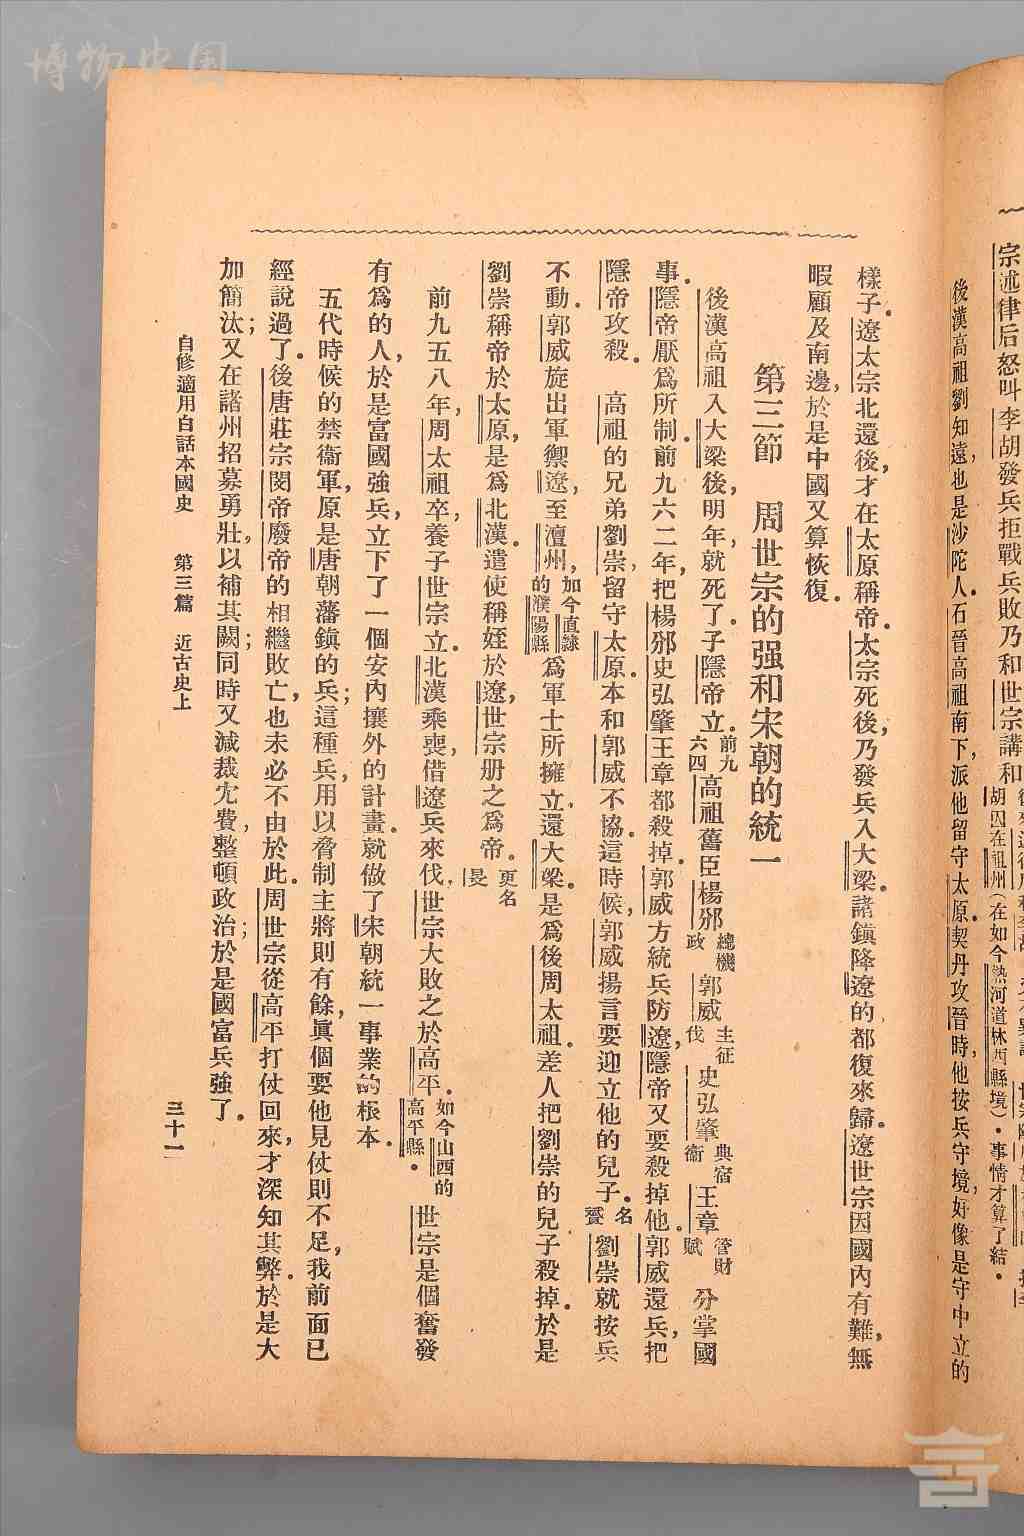 博物中国
宗述律后怒叫李胡發兵拒戰兵敗乃和世宗講和
胡囚在祖州（在如今熱河道林西縣境）・事情才算了結・
後漢高祖劉知遠，也是沙陀人・石晉高祖南下，派他留守太原・契丹攻晉時，他按兵守境，好像是守中立的
樣子・遼太宗北還後，才在太原稱帝・太宗死後，乃發兵入大梁・諸鎮降遼的都復來歸・遼世宗因國內有難，無
暇顧及南邊，於是中國又算恢復・
第三節　周世宗的强和宋朝的統一
後漢高祖入大梁後，明年，就死了・子隱帝立・前九六四高祖舊臣楊邠總機政郭威主征伐史弘肇典宿衞王章管財賦分掌國
事・隱帝厭爲所制・前九六二年，把楊邠史弘肇王章都殺掉・郭威方統兵防遼，隱帝又要殺掉他・郭威還兵，把
隱帝攻殺・　高祖的兄弟劉崇，留守太原・本和郭威不協・這時候，郭威揚言要迎立他的兒子・名贇劉崇就按兵
不動・郭威旋出軍禦遼，至澶州，如今直隸的濮陽縣爲軍士所擁立・還大梁・是爲後周太祖・差人把劉崇的兒子殺掉・於是
劉崇稱帝於太原，是爲北漢・遣使稱姪於遼，世宗册之爲帝・更名旻
前九五八年，周太祖卒，養子世宗立・北漢乘喪，借遼兵來伐，世宗大敗之於高平・如今山西的高平縣・世宗是個奮發
有爲的人，於是富國強兵，立下了一個安內攘外的計畫・就做了宋朝統一事業的根本・
五代時候的禁衞軍，原是唐朝藩鎮的兵；這種兵，用以脅制主將則有餘，眞個要他見仗則不足，我前面已
經說過了・後唐莊宗閔帝廢帝的相繼敗亡，也未必不由於此・周世宗從高平打仗回來，才深知其弊・於是大
加簡汰；又在諸州招募勇壯，以補其闕；同時又減裁宂費，整頓政治；於是國富兵強了・
自修適用白話本國史　第三篇　近古史上　三十一